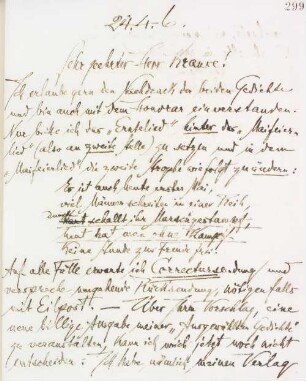 299
24.4.6.
Sehr geehrter Herr Krause!
Ich erlaube gern den Nachdruck der beiden Gedichte
und bin auch mit dem Honorar einverstanden.
Nur bitte ich das „Erntelied" hinter das „Maifeier-
lied" (also an zweite Stelle) zu setzen und in dem
„Maifeierlied" die zweite Strophe wie folgt zu ändern:
Es ist auch heute erster Mai;
viel Männer schreiten in einer Reih,
schallt ihr Marschgestampf:
heut hat
keine Stunde zur Freude frei!
Auf alle Fälle erwarte ich Correctursendung und
verspreche umgehende Rücksendung, nötigenfalls
mit Eilpost. — Über Ihren Vorschlag, eine
neue billige Ausgabe meiner „Ausgewählten Gedichte"
zu veranstalten, kann ich mich jetzt noch nicht
entscheiden: Ich habe nämlich meinen Verlag